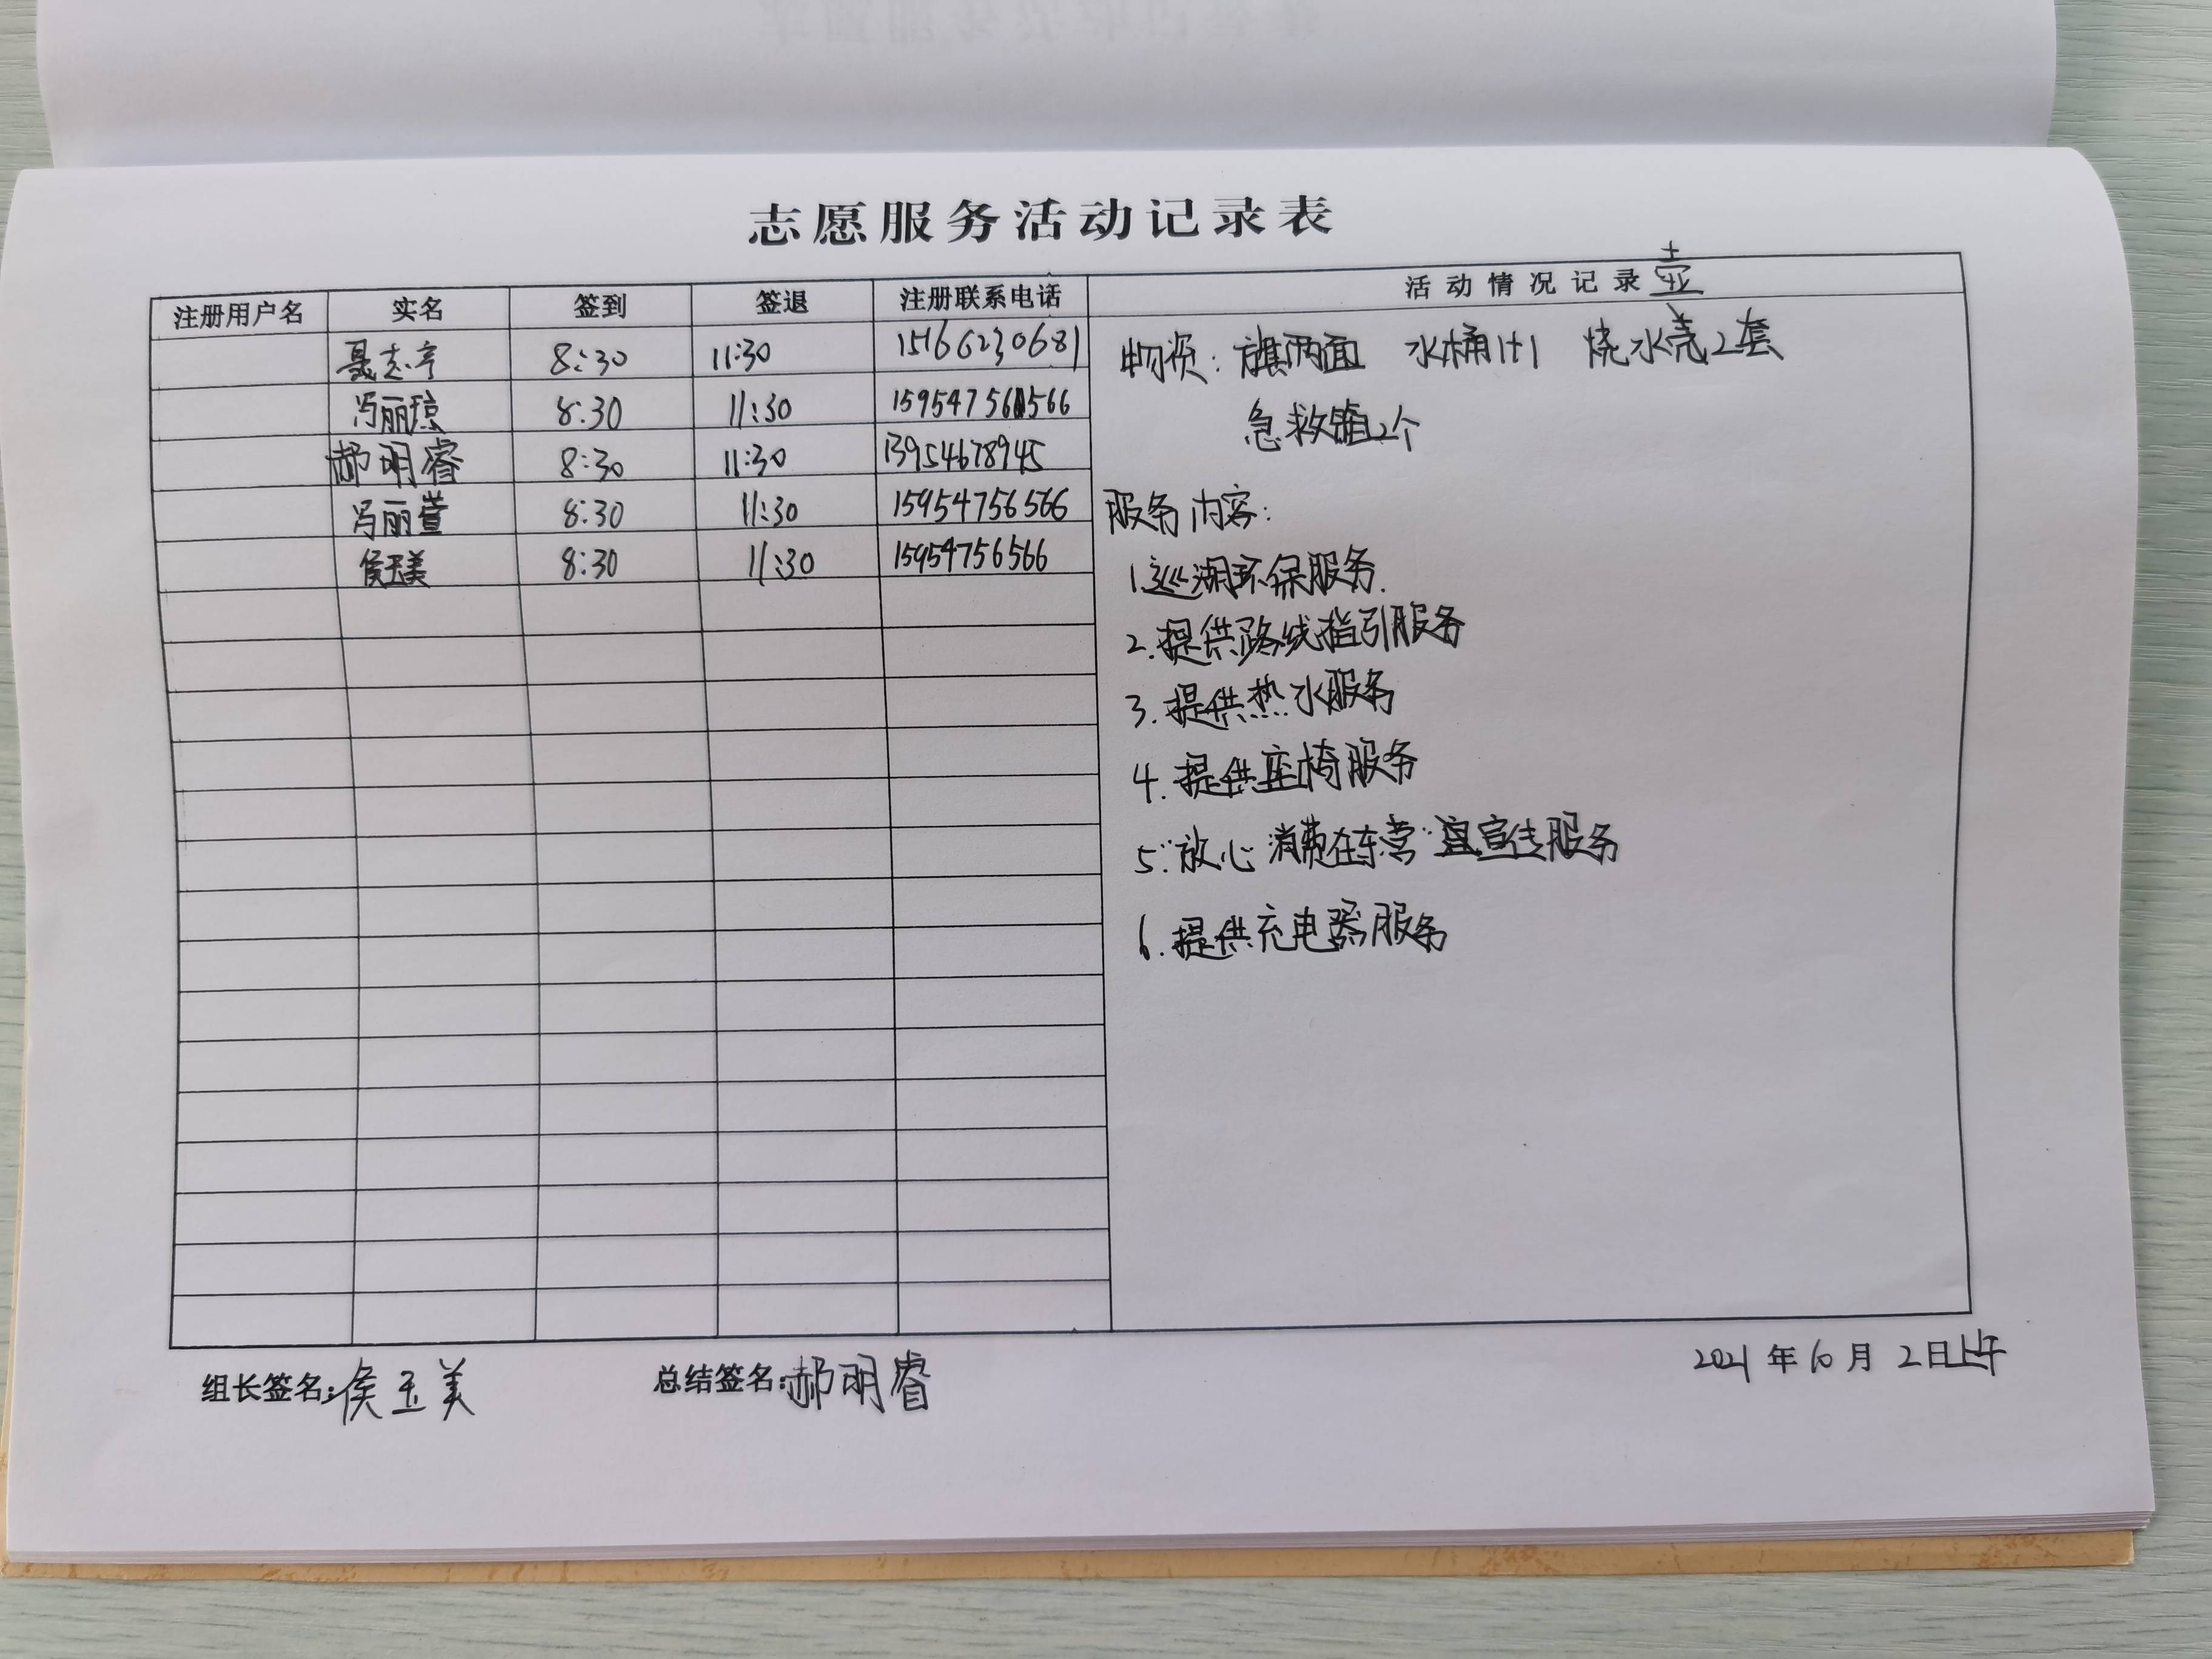 志愿服务活动记录表
注册用户名 实名 签到 签退 注册联系电话 活动情况记录 壶
聂志亭 8:30 11:30 15166230681
冯丽琼 8:30 11:30 15954756566
郝明睿 8:30 11:30 13954678945
冯丽萱 8:30 11:30 15954756566
侯玉美 8:30 11:30 15954756566
物资: 旗两面 水桶1+1 烧水壶2套
急救箱2个
服务内容:
1.巡湖环保服务.
2.提供路线指引服务
3.提供热水服务
4.提供座椅服务
5."放心消费在东营"宣传服务
6.提供充电器服务
组长签名:侯玉美 总结签名:郝明睿 2021年10月2日上午